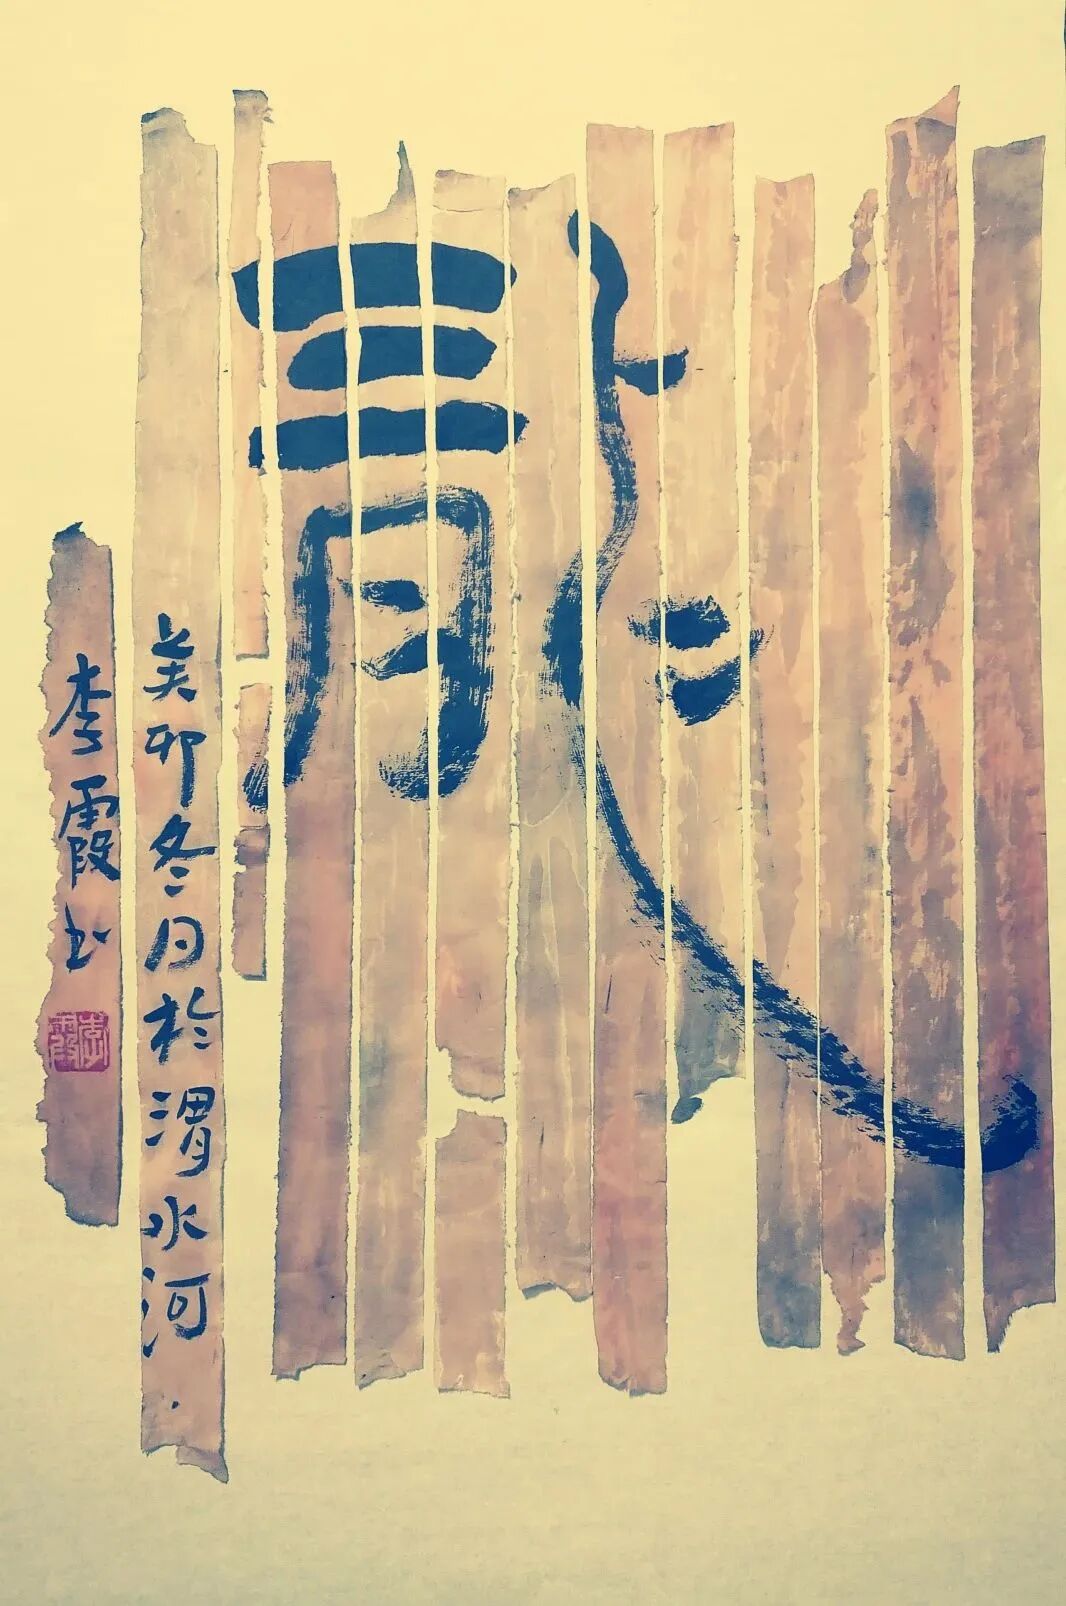 龍
癸卯冬月於渭水河
李霞书
李霞